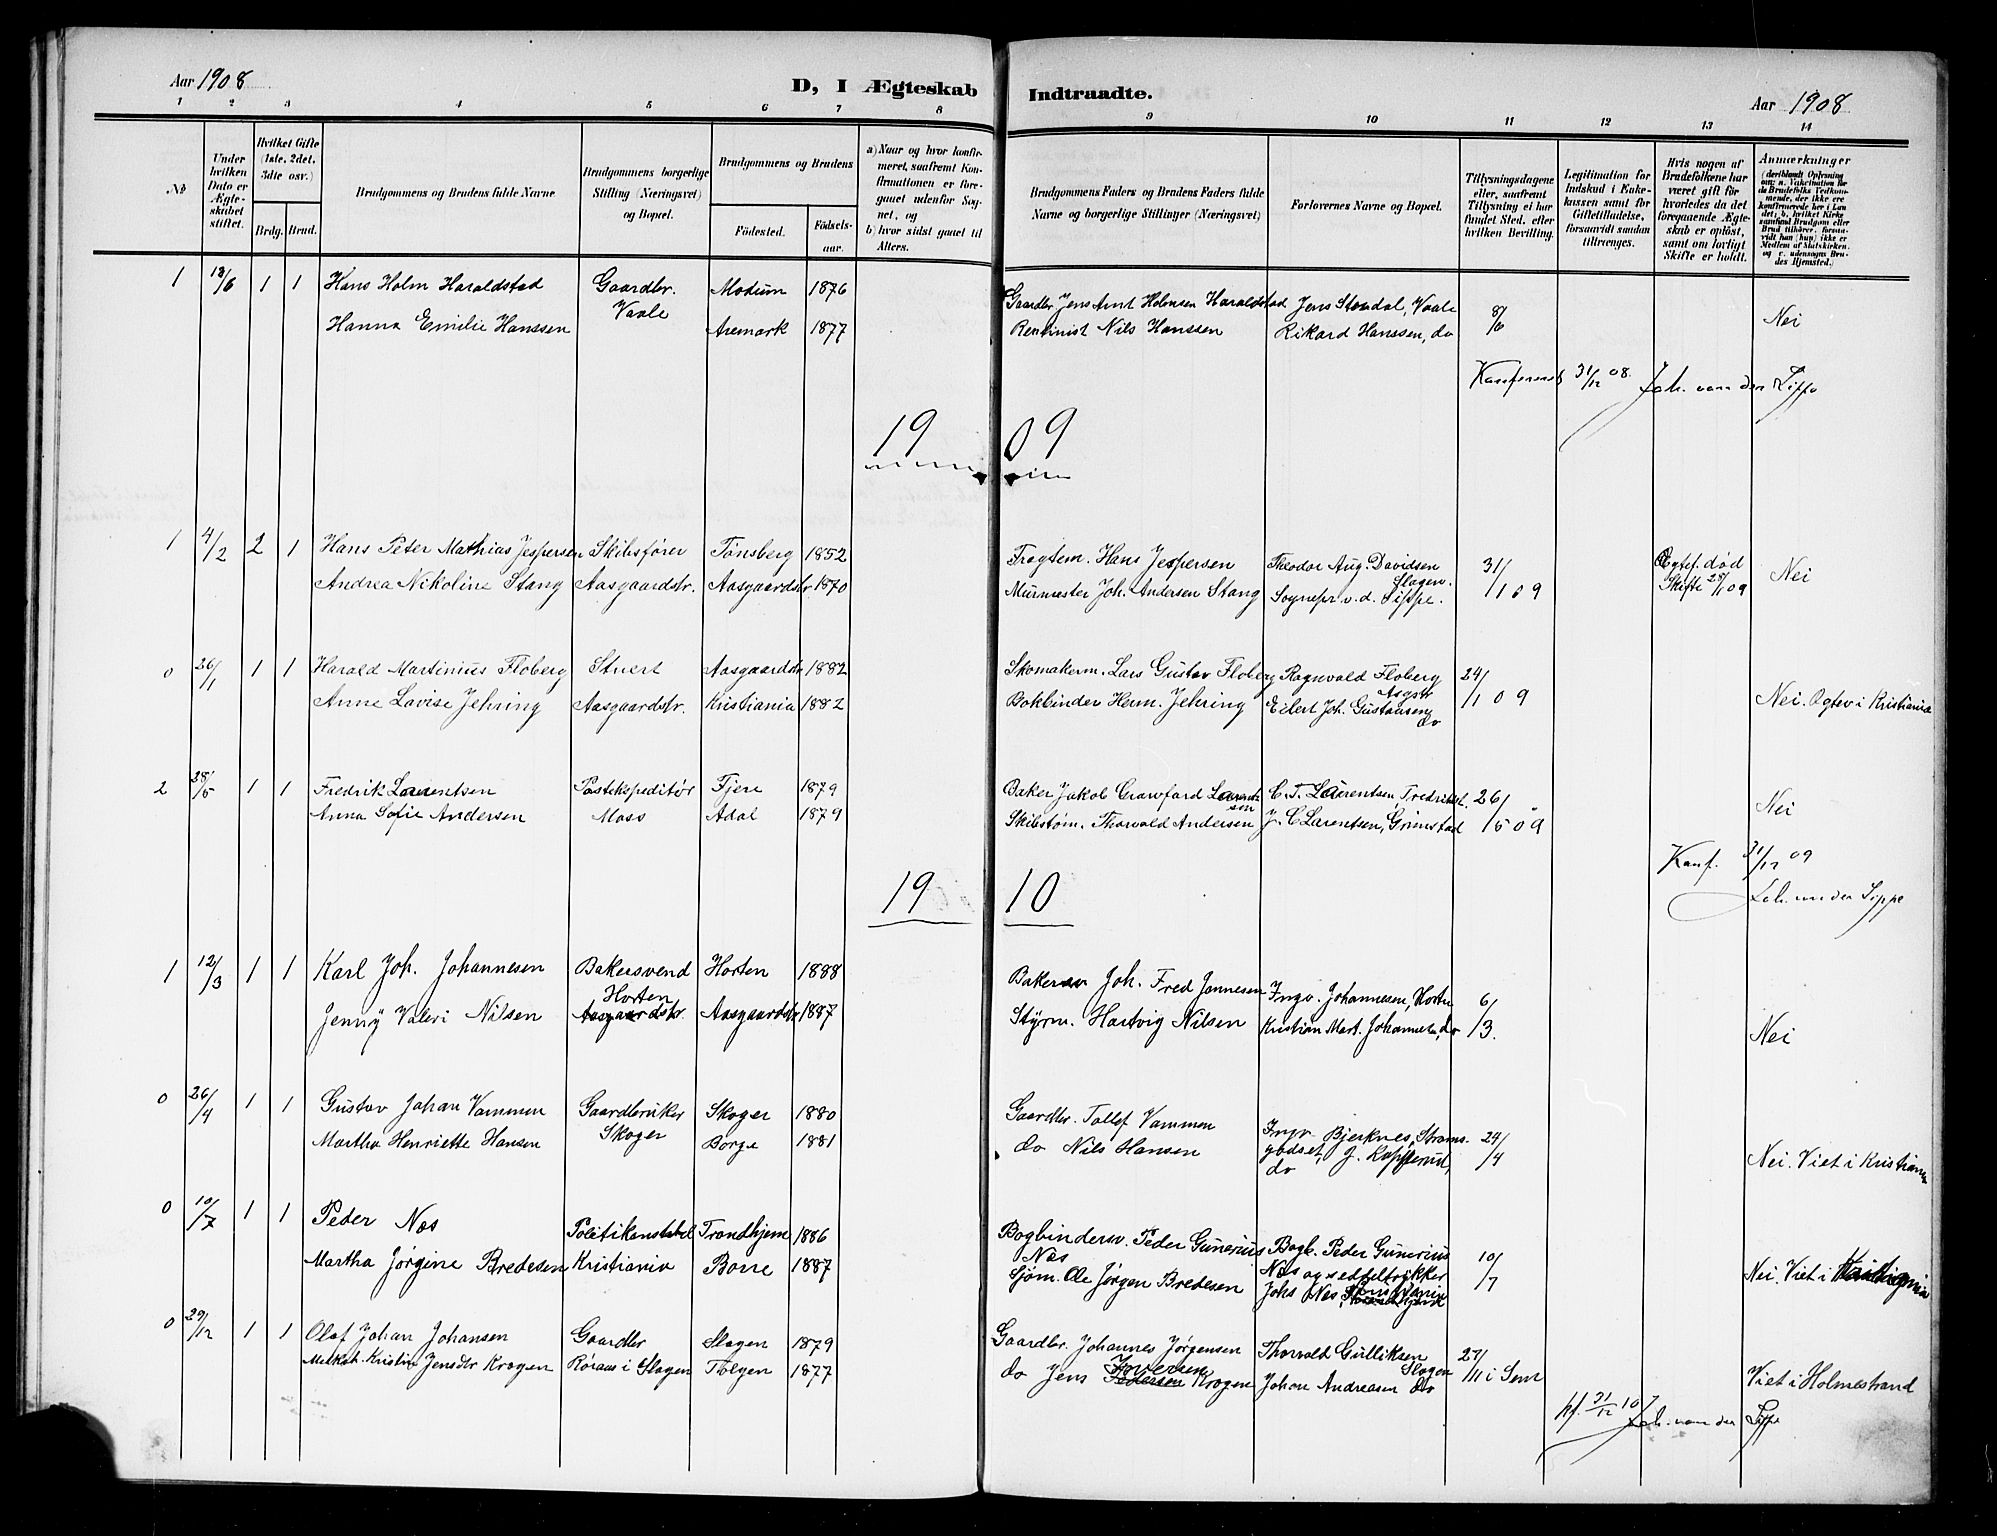 Aar 1908
D, I Ægteskab Indtraadte.
Aar 1908
1 2 3 4 5 6 7 8 9 10 11 12 13 14
No
Under hvilken Dato er Ægteskabet stiftet.
Hvilket Gifte (1ste, 2det, 3die osv.)
Brdg. Brud.
Brudgommens og Brudens fulde Navne
Brudgommens borgerlige Stilling (Næringsvei) og Bopæl.
Brudgommens og Brudens
Fødested.
Fødselsaar.
a) Naar og hvor konfirmeret, saafremt Konfirmationen er foregaaet udenfor Sognet, og
b) hvor sidst gaaet til Alters.
Brudgommens Faders og Brudens Faders fulde Navne og borgerlige Stillinger (Næringsvei)
Forlovernes Navne og Bopæl.
Tillysningsdagene eller, saafremt Tillysning ei har fundet Sted, efter hvilken Bevilling.
Legitimation for Indskud i Enkekassen samt for Giftetilladelse, forsaavidt saadan tiltrænges.
Hvis nogen af Brudefolkene har været gift før hvorledes da det foregaaende Ægteskab er opløst, samt om lovligt Skifte er holdt.
Anmærkninger
1 13/6 1 1 Hans Holm Haraldstad Gaardbr. Modum 1876 Gaardbr Jens Amt Holmsen Haraldstad Jens Stendal, Vaale 8/6 Nei
Hanna Emilie Hanssen Vaale Aremark 1877 Rentenist Nils Hanssen Rikard Hanssen, do
Konfereret 31/12 08. Joh. van der Lippe
1909
1 4/2 2 1 Hans Peter Mathias Jespersen Skibsfører Tønsberg 1852 Fragtem. Hans Jespersen Theodor Aug. Davidsen Slagen. 31/1 09 Egtef. død Skifte 28/1 09 Nei
Andrea Nikoline Stang Aasgaardstr. Aasgaardstr. 1870 Murmester Joh. Andersen Stang Sognepr v. d. Lippe.
0 26/1 1 1 Harald Martinius Floberg Stuert Aasgaardstr 1882 Skomakerm. Lars Gustav Floberg Ragnvald Floberg Asgstr 24/1 09
Anne Lovise Jehring Aasgaardstr. Kristiania 1882 Bokbinder Herm. Jehring Eilert Joh. Gustavsen do Nei. Ogtev i Kristiania
2 28/5 1 1 Fredrik Laurentsen Postekspeditør Fjere 1879 Baker Jakob Crawfard Laurentsen C. T. Laurentsen, Fredrikst. 26/5 09 Nei
Anna Sofie Andersen Moss Adal 1879 Skibstøm. Thorvald Andersen J. C Larentsen, Grimstad
Konf. 31/12 09
Joh. van der Lippe
1910
1 12/3 1 1 Karl Joh. Johannesen Bakersvend Horten 1888 Bakersv Joh. Fred Jonnesen Ingv. Johannesen, Horten 6/3. Nei
Jenny Valeri Nilsen Horten Aasgaardstr. Aasgaardstr 1887 Styrm. Hartvig Nilsen Kristian Mart. Johannesen, do
0 26/4 1 1 Gustav Johan Vammen Gaardbruker Skoger 1880 Gaardbr. Tollef Vammen Ingv. Bjerknes, Strømsgodset, J. Kopperud, do 24/4
Martha Henriette Hansen Skoger Borge 1881 do Nils Hansen Nei. Viet i Kristiania
0 10/7 1 1 Peder Næs Politikonstabel Trondhjem 1886 Bogbindersv. Peder Gunerius Næs Bogb. Peder Gunerius Næs og sedteltrykker Johs Næs Kristiania 10/7
Martha Jørgine Bredesen Kristiania Borre 1887 Sjøm. Ole Jørgen Bredesen Nei. Viet i Kristiania
0 29/12 1 1 Olaf Johan Johansen Gaardbr Slagen 1879 Gaardbr. Johannes Jørgensen Thorvald Gulliksen Slagen 27/11 i Sem
Kristin Jensdtr Krogen Røraas i Slagen Tolgen 1877 do Jens Iversen Pedersen Krogen Johan Andreasen do Viet i Holmestrand
kf. 31/12 10 Joh. van der Lippe